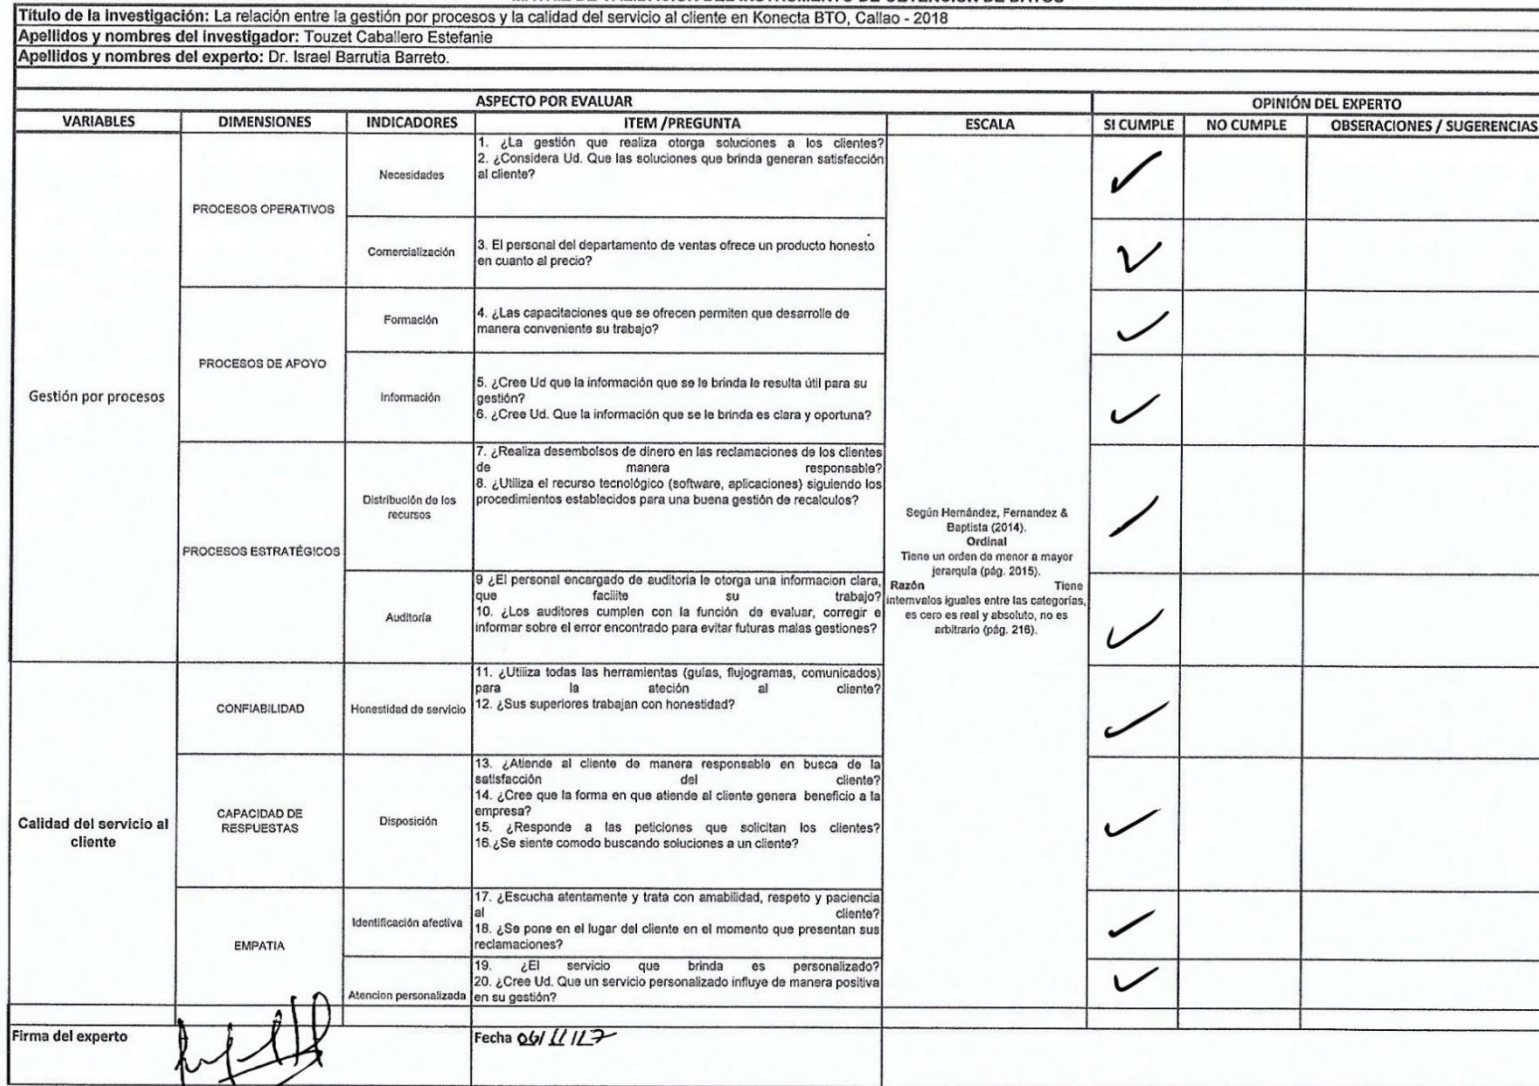 Título de la investigación: La relación entre la gestión por procesos y la calidad del servicio al cliente en Konecta BTO, Callao - 2018
Apellidos y nombres del investigador: Touzet Caballero Estefanie
Apellidos y nombres del experto: Dr. Israel Barrutia Barreto.
ASPECTO POR EVALUAR
OPINIÓN DEL EXPERTO
VARIABLES
DIMENSIONES
INDICADORES
ITEM /PREGUNTA
ESCALA
SI CUMPLE
NO CUMPLE
OBSERACIONES / SUGERENCIAS
Gestión por procesos
PROCESOS OPERATIVOS
Necesidades
1. ¿La gestión que realiza otorga soluciones a los clientes?
2. ¿Considera Ud. Que las soluciones que brinda generan satisfacción
al cliente?
Comercialización
3. El personal del departamento de ventas ofrece un producto honesto
en cuanto al precio?
PROCESOS DE APOYO
Formación
4. ¿Las capacitaciones que se ofrecen permiten que desarrolle de
manera conveniente su trabajo?
Información
5. ¿Cree Ud que la información que se le brinda le resulta útil para su
gestión?
6. ¿Cree Ud. Que la información que se le brinda es clara y oportuna?
PROCESOS ESTRATÉGICOS
Distribución de los
recursos
7. ¿Realiza desembolsos de dinero en las reclamaciones de los clientes
de manera responsable?
8. ¿Utiliza el recurso tecnológico (software, aplicaciones) siguiendo los
procedimientos establecidos para una buena gestión de recalculos?
Auditoría
9 ¿El personal encargado de auditoria le otorga una informacion clara,
que facilite su trabajo?
10. ¿Los auditores cumplen con la función de evaluar, corregir e
informar sobre el error encontrado para evitar futuras malas gestiones?
Según Hernández, Fernandez &
Baptista (2014).
Ordinal
Tiene un orden de menor a mayor
jerarquía (pág. 2015).
Razón Tiene
intemvalos iguales entre las categorías,
es cero es real y absoluto, no es
arbitrario (pág. 216).
Calidad del servicio al
cliente
CONFIABILIDAD
Honestidad de servicio
11. ¿Utiliza todas las herramientas (guías, flujogramas, comunicados)
para la ateción al cliente?
12. ¿Sus superiores trabajan con honestidad?
CAPACIDAD DE
RESPUESTAS
Disposición
13. ¿Atiende al cliente de manera responsable en busca de la
satisfacción del cliente?
14. ¿Cree que la forma en que atiende al cliente genera beneficio a la
empresa?
15. ¿Responde a las peticiones que solicitan los clientes?
16.¿Se siente comodo buscando soluciones a un cliente?
EMPATIA
Identificación afectiva
17. ¿Escucha atentamente y trata con amabilidad, respeto y paciencia
al cliente?
18. ¿Se pone en el lugar del cliente en el momento que presentan sus
reclamaciones?
Atencion personalizada
19. ¿El servicio que brinda es personalizado?
20. ¿Cree Ud. Que un servicio personalizado influye de manera positiva
en su gestión?
Firma del experto
Fecha 06/11/17